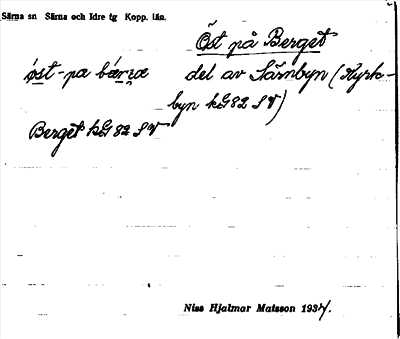 Särna sn Särna och Idre tg Kopp. län.
Öst på Berget
öst-pa bærjæ del av Särnbyn (Kyrk-
byn kG82 SV)
Berget kG82 SV
Niss Hjalmar Matsson 1937.